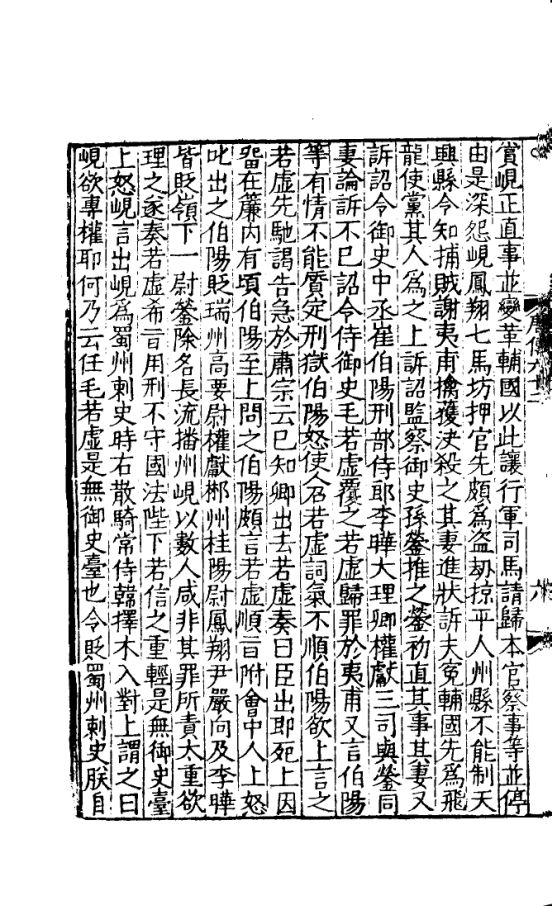 賞峴正直事並變革輔國以此讓行軍司馬請歸本官察事等並停
由是深怨峴鳳翔七馬坊押官先頗爲盜劫掠平人州縣不能制天
興縣令知捕賊謝夷甫擒獲決殺之其妻進狀訴夫冤輔國先爲飛
龍使黨其人爲之上訴詔監察御史孫鎣推之鎣初直其事其妻又
訴詔令御史中丞崔伯陽刑部侍郎李曄大理卿權獻三司與鎣同
妻論訴不已詔令侍御史毛若虛覆之若虛歸罪於夷甫又言伯陽
等有情不能質定刑獄伯陽怒使人召若虛詞氣不順伯陽欲上言之
若虛先馳謁告急於肅宗云已知卿出去若虛奏曰臣出即死上因
留在簾內有頃伯陽至上問之伯陽頗言若虛順旨附會中人上怒
叱出之伯陽貶瑞州高要尉權獻郴州桂陽尉鳳翔尹嚴向及李曄
皆貶嶺下一尉鎣除名長流播州峴以數人咸非其罪所責太重欲
理之遂奏若虛希旨用刑不守國法陛下若信之重輕是無御史臺
上怒峴言出峴爲蜀州刺史時右散騎常侍韓擇木入對上謂之曰
峴欲專權耶何乃云任毛若虛是無御史臺也令貶蜀州刺史朕自